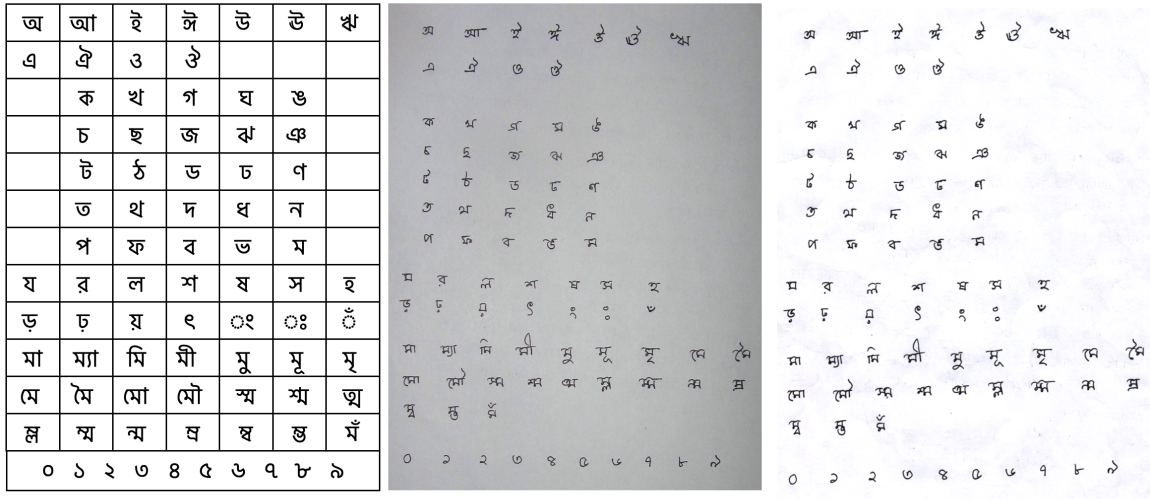 অ আ ই ঈ উ ঊ ঋ
এ ঐ ও ঔ
ক খ গ ঘ ঙ
চ ছ জ ঝ ঞ
ট ঠ ড ঢ ণ
ত থ দ ধ ন
প ফ ব ভ ম
য র ল শ ষ স হ
ড় ঢ় য় ৎ ং ঃ ঁ
মা ম্যা মি মী মু মূ মৃ
মে মৈ মো মৌ স্ম শ্ম ত্ম
ম্ল ম্ম ন্ম ম্র ম্ব ম্ভ মঁ
০ ১ ২ ৩ ৪ ৫ ৬ ৭ ৮ ৯
অ আ ই ঈ উ ঊ ঋ
এ ঐ ও ঔ
ক খ গ ঘ ঙ
চ ছ জ ঝ ঞ
ট ঠ ড ঢ ণ
ত থ দ ধ ন
প ফ ব ভ ম
য র ল শ ষ স হ
ড় ঢ় য় ৎ ং ঃ ঁ
মা ম্যা মি মী মু মূ মৃ মে মৈ
মো মৌ স্ম শ্ম ত্ম ম্ল ম্ম ন্ম ম্র
ম্ব ম্ভ মঁ
০ ১ ২ ৩ ৪ ৫ ৬ ৭ ৮ ৯
অ আ ই ঈ উ ঊ ঋ
এ ঐ ও ঔ
ক খ গ ঘ ঙ
চ ছ জ ঝ ঞ
ট ঠ ড ঢ ণ
ত থ দ ধ ন
প ফ ব ভ ম
য র ল শ ষ স হ
ড় ঢ় য় ৎ ং ঃ ঁ
মা ম্যা মি মী মু মূ মৃ মে মৈ
মো মৌ স্ম শ্ম ত্ম ম্ল ম্ম ন্ম ম্র
ম্ব ম্ভ মঁ
০ ১ ২ ৩ ৪ ৫ ৬ ৭ ৮ ৯